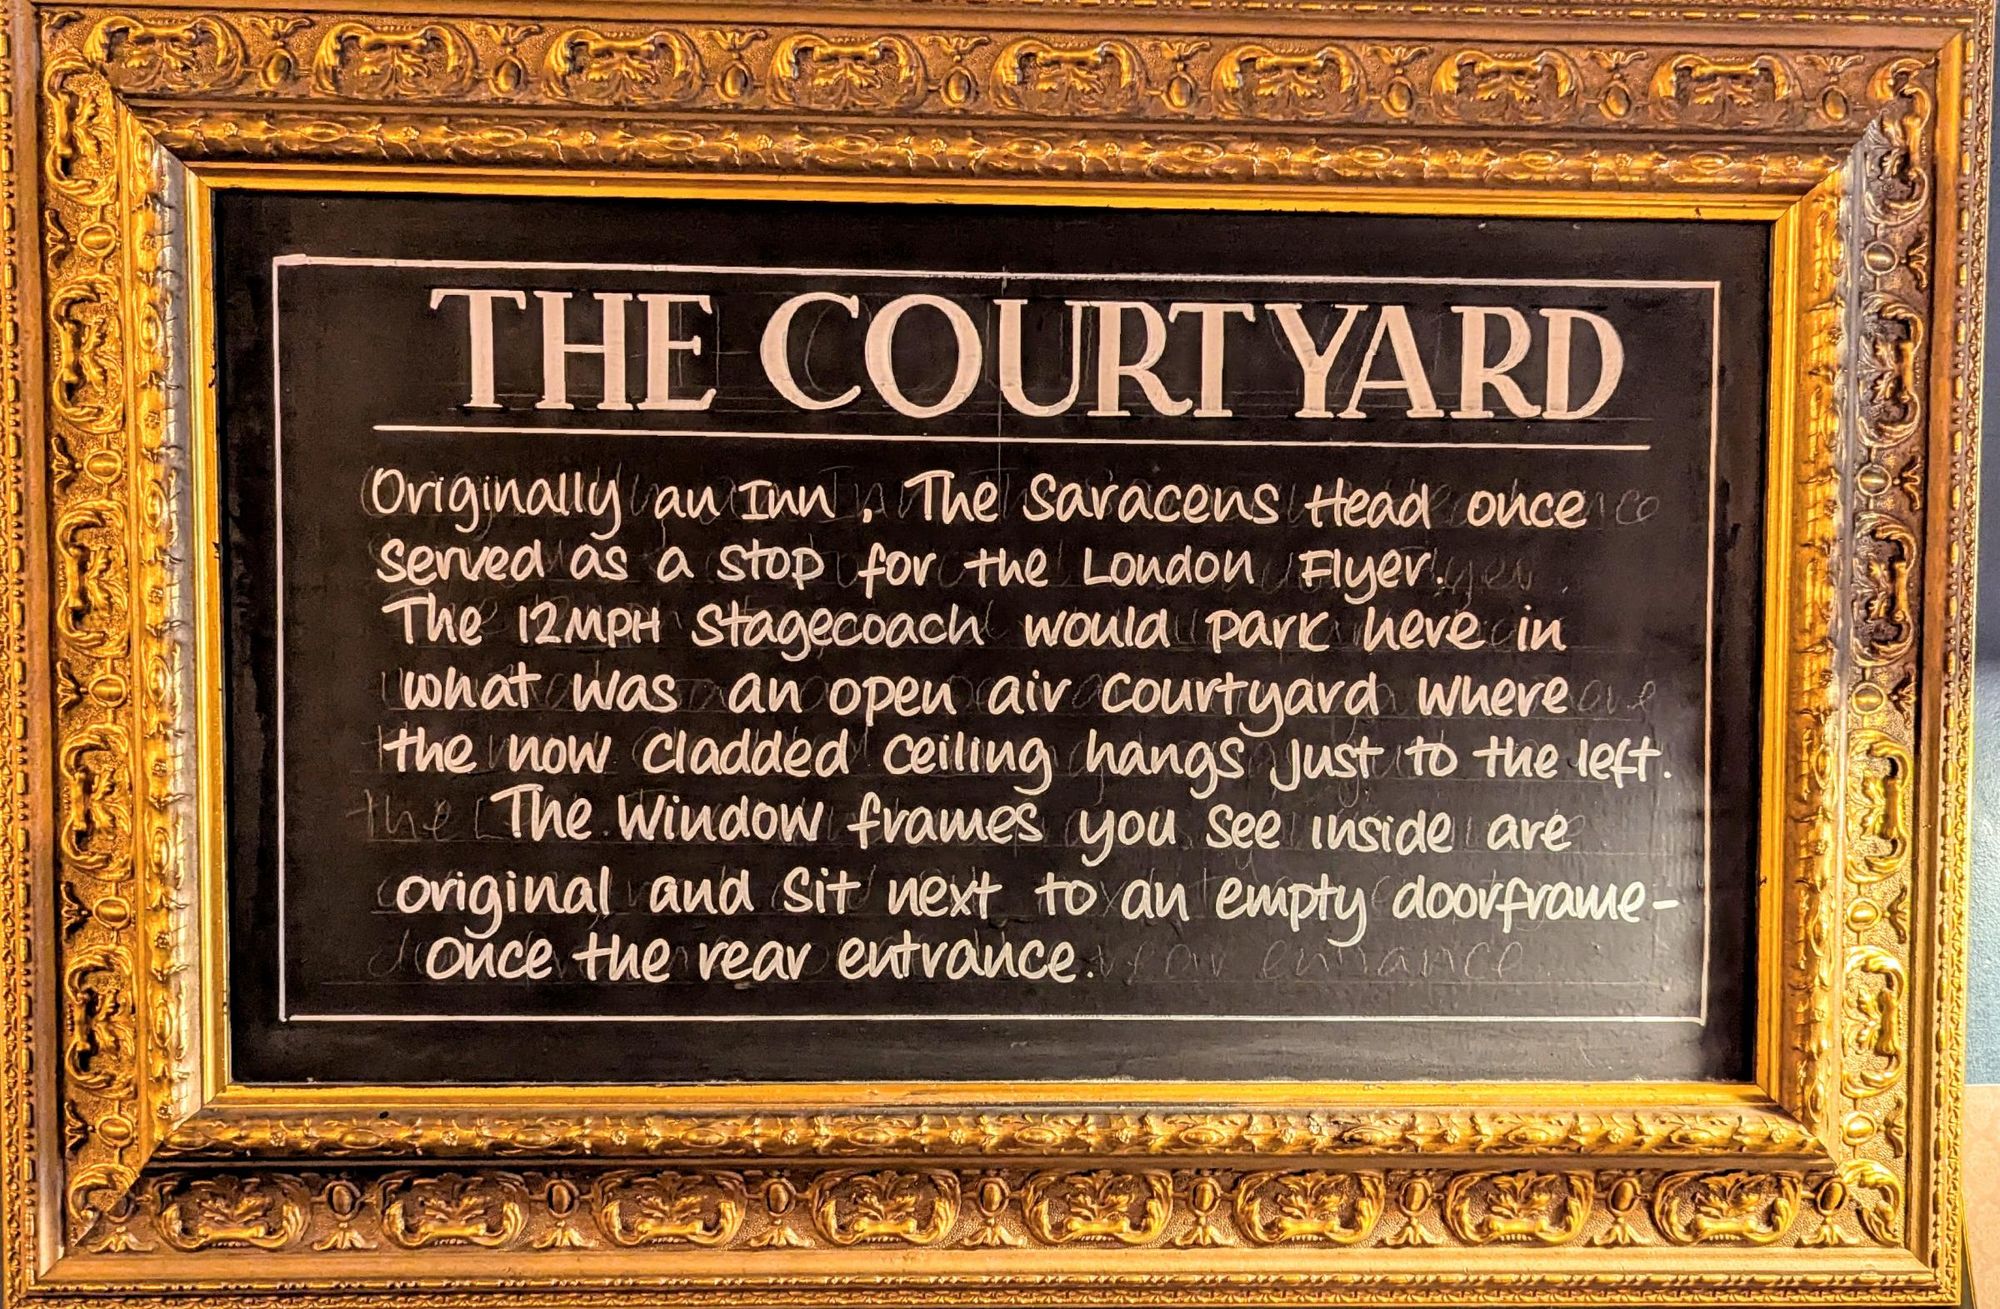 THE COURTYARD
Originally an Inn, The Saracens Head once
served as a stop for the London Flyer.
The 12MPH Stagecoach would park here in
what was an open air courtyard where
the now cladded ceiling hangs just to the left.
The Window frames you see inside are
original and sit next to an empty doorframe-
once the rear entrance.